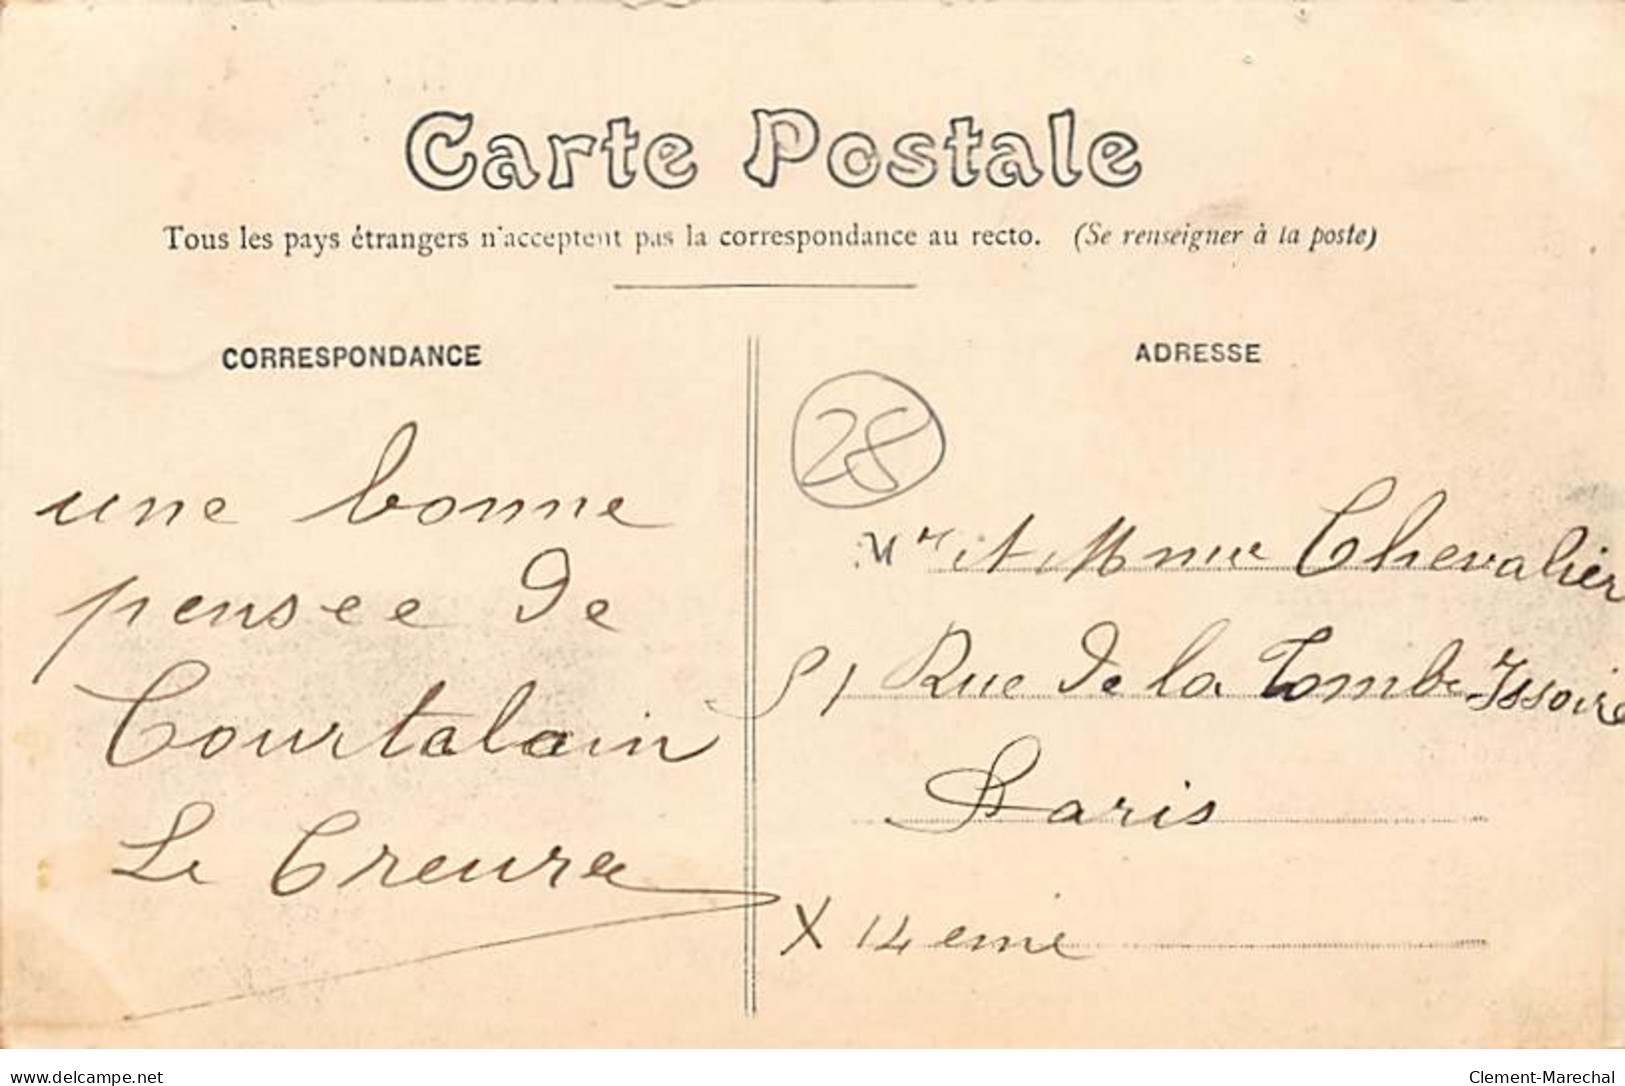 Carte Postale
Tous les pays étrangers n'acceptent pas la correspondance au recto. (Se renseigner à la poste)
CORRESPONDANCE
une bonne
pensee de
Courtalain
Le Creurer
ADRESSE
28
Mr et Mme Chevalier
51 Rue de la Tombe Issoire
Paris
X 14 eme
www.delcampe.net
Clement-Marechal